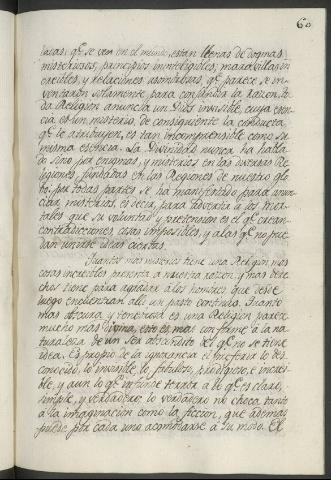 60
losas: q.e se ven en el mundo, estan llenas de dogmas
misteriosos, principios inintelegibles, maravillas in
creibles, y relaciones asombrosas, q.e parece se in-
ventaron solamente para confundir la razon. To
da Religion anuncia un Dios invisible, cuya esen-
cia es un misterio, de consiguiente la conducta
q.e le atribuyen, es tan incomprensible como su
misma esencia. La Divinidad nunca ha habla
do sino por enigmas, y misterios en las diversas Re
ligiones, fundadas en las Regiones de nuestro glo
bo: por todas partes se ha manifestado para anun
ciar misterios, es decir, para advertir a los mor-
tales que su voluntad y pretension es el q.e crean
contradicciones cosas imposibles, y a las q.e no pue
dan unirse ideas ciertas.
Quantos mas misterios tiene una Religion mas
cosas increibles presenta a nuestra razon, y mas dere
chos tiene para agradar a los hombres que desde
luego encuentran alli un pasto continuo. Quanto
mas obscura, y tenebrosa es una Religion parece
mucho mas divina, esto es, mas conforme a la na
turaleza de un Ser escondido del q.e no se tiene
idea. Es propio de la ignorancia el preferir lo des-
conocido, lo invisible, lo fabuloso, prodigioso, e increi-
ble, y aun lo q.e infunde terror a lo q.e es claro,
simple, y verdadero; lo verdadero no choca tanto
a la imaginacion como la ficcion, que ademas
puede por cada uno acomodarse a su modo. El